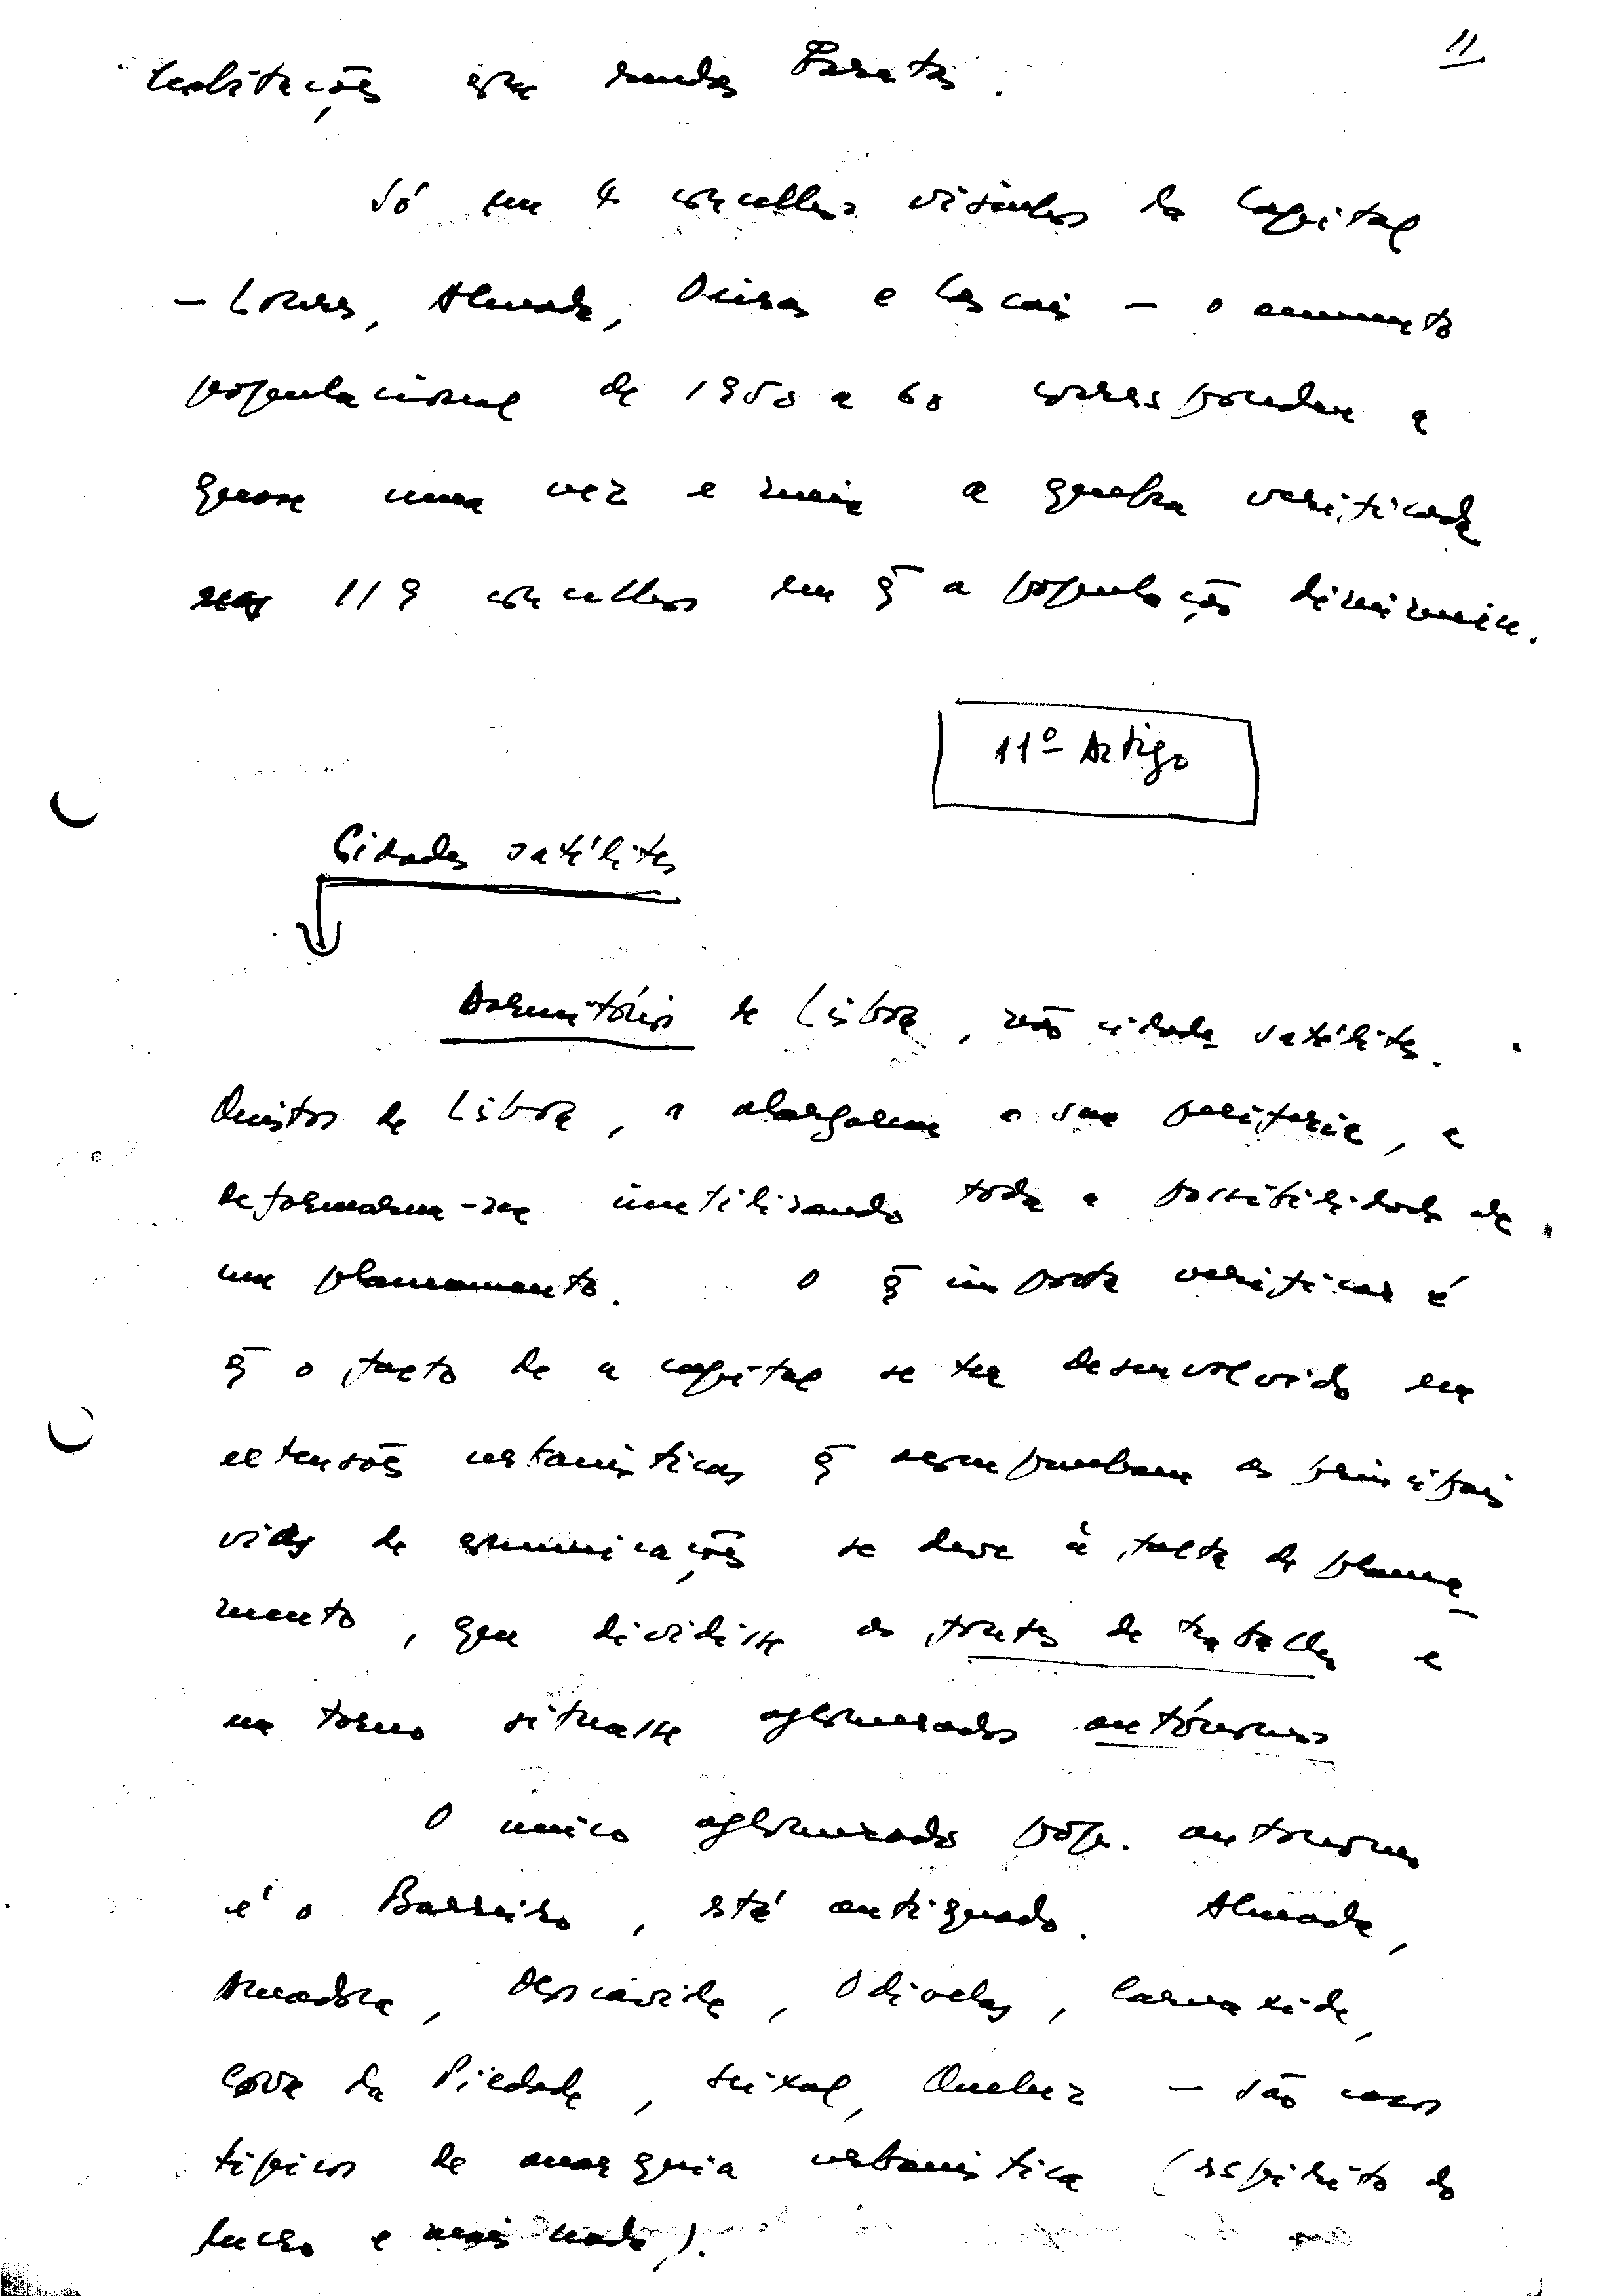 11
habitações com rendas baratas.
Só em 4 concelhos vizinhos da capital
– Loures, Almada, Oeiras e Cascais – o aumento
populacional de 1950 a 60 correspondeu a
quase uma vez e meia a quebra verificada
nos 119 concelhos em q̄ a população diminuiu.
11º Artigo
Cidades satélites
Dormitórios de Lisboa, não cidades satélites.
Quistos de Lisboa, a alargarem a sua periferia, a
deformarem-se inutilizando toda a possibilidade de
um planeamento. O q̄ importa verificar é
q̄ o facto de a capital se ter desenvolvido em
extensões urbanísticas q̄ acompanham as principais
vias de comunicações se deve à falta de planea
mento, que dividisse as fontes de trabalho e
em torno situasse aglomerados autónomos
O unico aglomerado pop. autonomo
é o Barreiro, está antiquado. Almada,
Amadora, Moscavide, Odivelas, Carnaxide,
Cova da Piedade, Seixal, Queluz – são casos
tipicos de anarquia urbanistica (espirito do
lucro e mais nada).